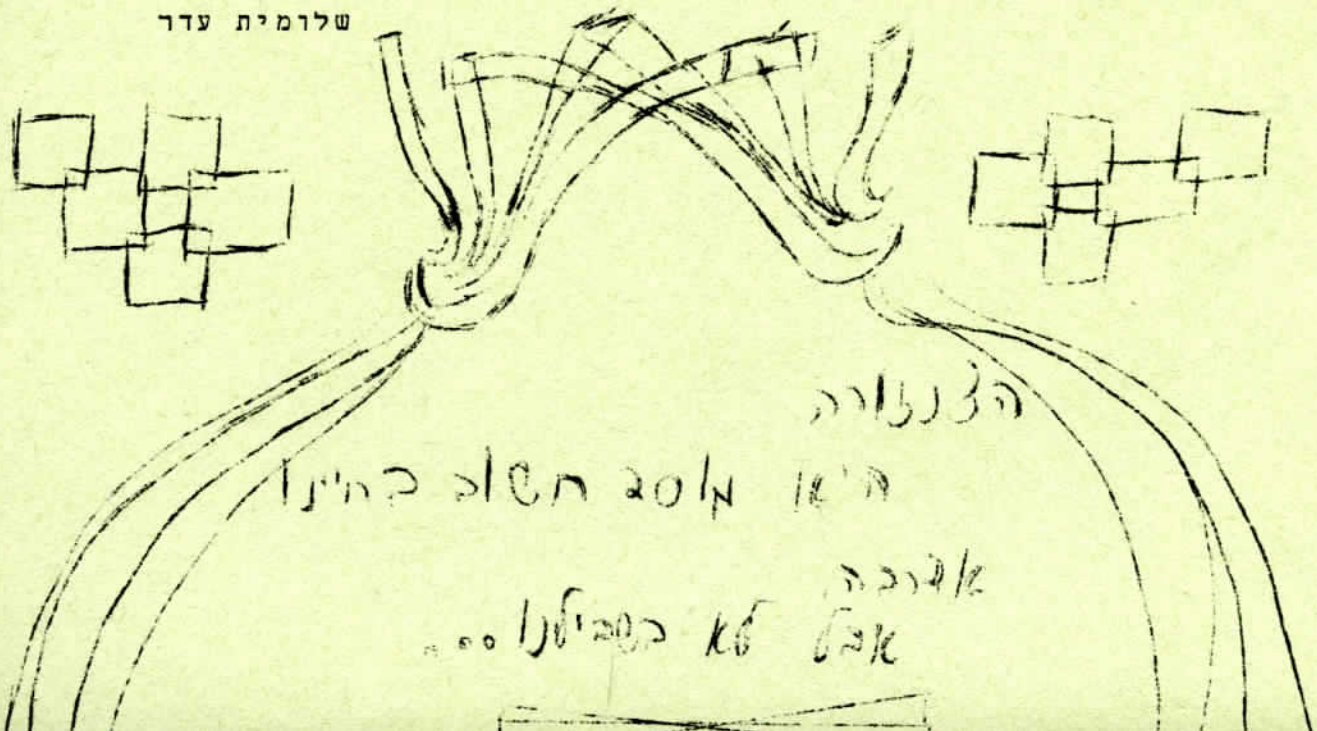 שלומית עדר
הצנזורה
היא מוסד חשוב בחיינו
אדרבה
אבל לא בשבילנו...